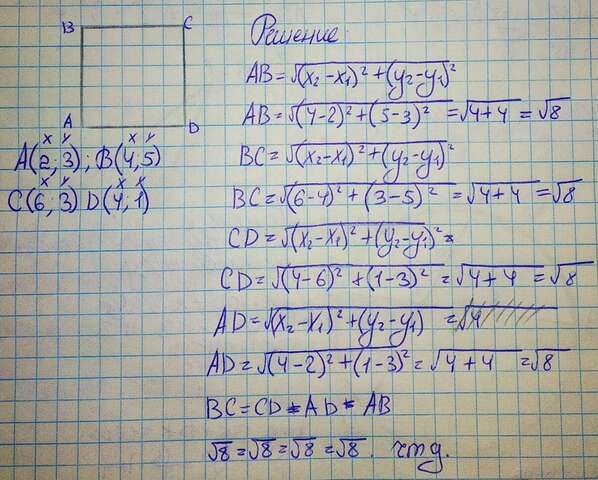 B C
A D
x y x y
A(2; 3); B(4; 5)
x y x y
C(6; 3) D(4; 1)
Решение
AB=√(x₂-x₁)²+(y₂-y₁)²
AB=√(4-2)²+(5-3)² =√4+4 =√8
BC=√(x₂-x₁)²+(y₂-y₁)²
BC=√(6-4)²+(3-5)² =√4+4 =√8
CD=√(x₂-x₁)²+(y₂-y₁)²=
CD=√(4-6)²+(1-3)² =√4+4 =√8
AD=√(x₂-x₁)²+(y₂-y₁)
AD=√(4-2)²+(1-3)²=√4+4 =√8
BC=CD=AD=AB
√8=√8=√8=√8. чтд.